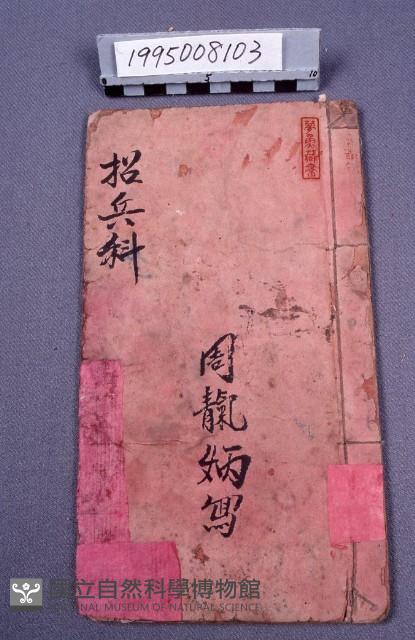 1995008103
5
10
招兵科
周龍炳寫
國立自然科學博物館
NATIONAL MUSEUM OF NATURAL SCIENCE